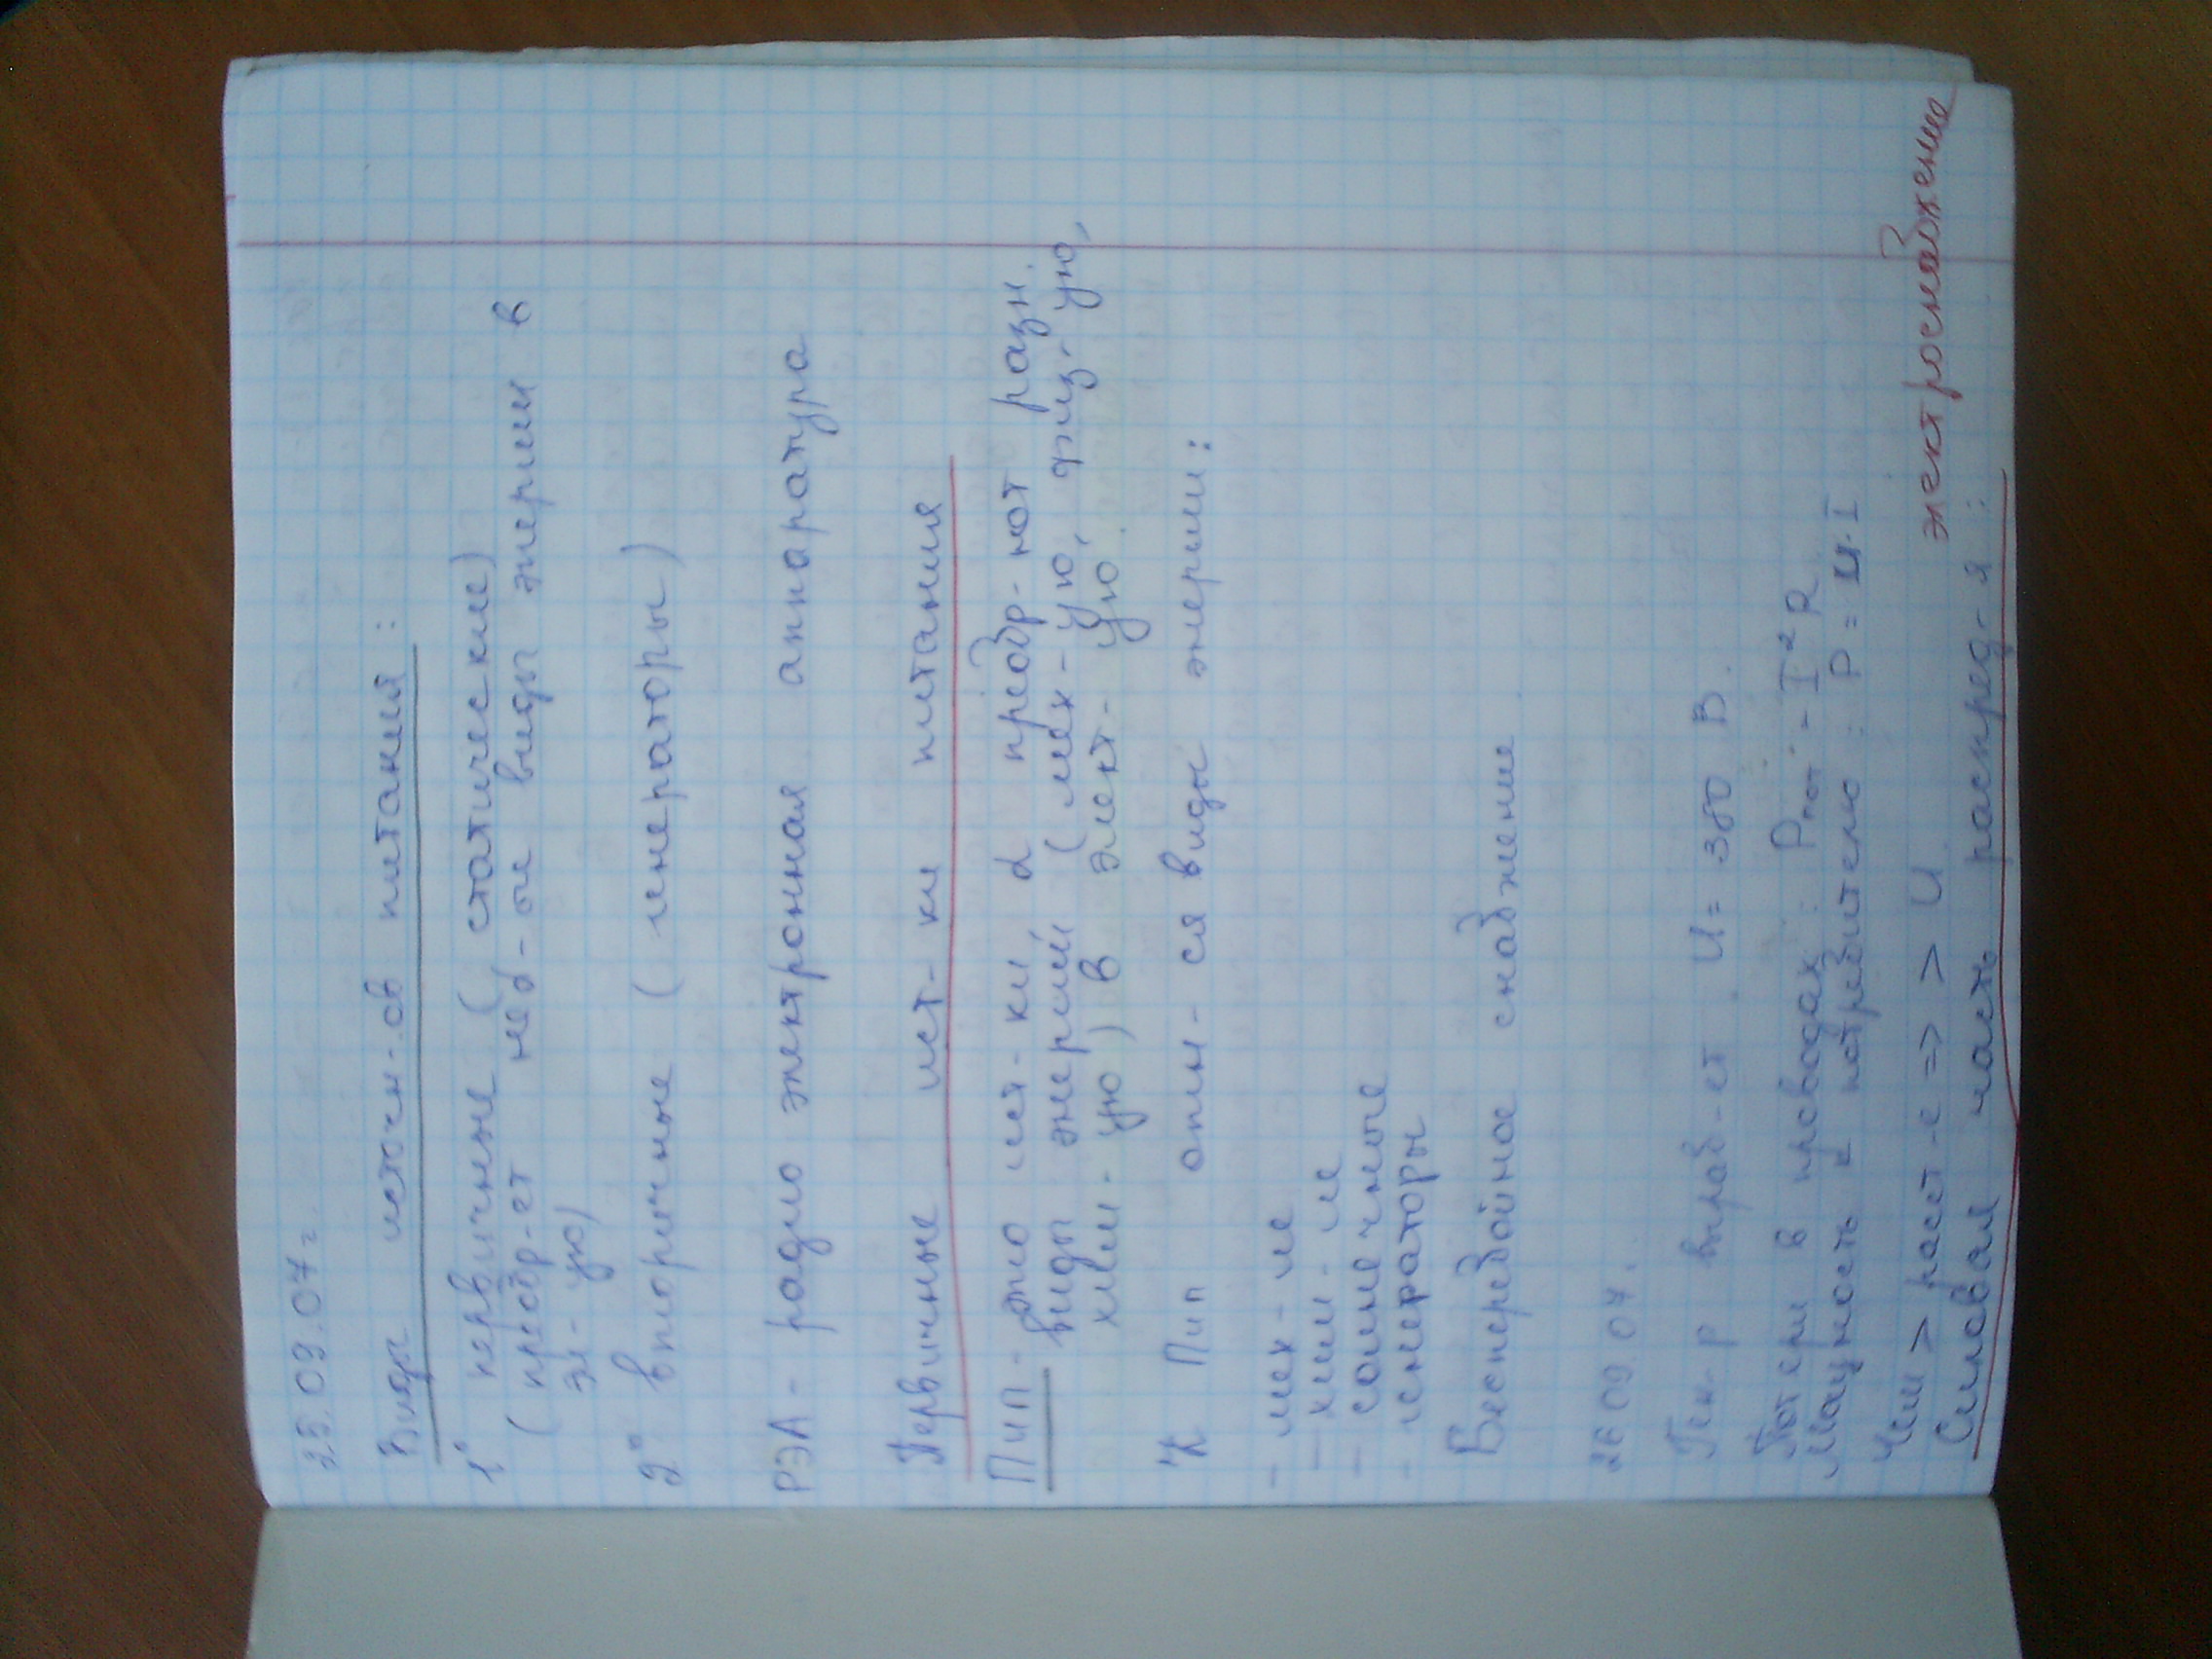 25.09.07г.
Виды источн-ов питаний:
1° первичные (статические)
(преобр-ет необ-ые виды энергии в
эл-ую)
2° вторичные (генераторы)
РЭА - радио электронная аппаратура
Первичные ист-ки питания
ПИП - это ист-ки, преобр-ют разн.
виды энергий (мех-ую, физ-ую,
хим-ую) в элект-ую.
К ПИП отн-ся виды энергии:
- мех-ие
- хим-ие
- солнечные
- генераторы
Бесперебойное снабжение
26 09 07.
Ген-р выраб-ет U = 380 В.
Потери в проводах: Pпот - I² R
Мощность к потребителю: P = U·I
Чем > раст-е => > U
электроснабжения
Силовая часть распред-я: